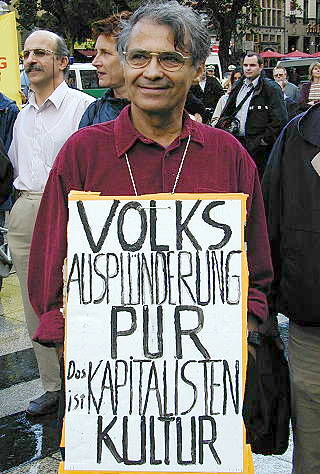 VOLKS
AUSPLÜNDERUNG
PUR
Das
ist KAPITALISTEN
KULTUR